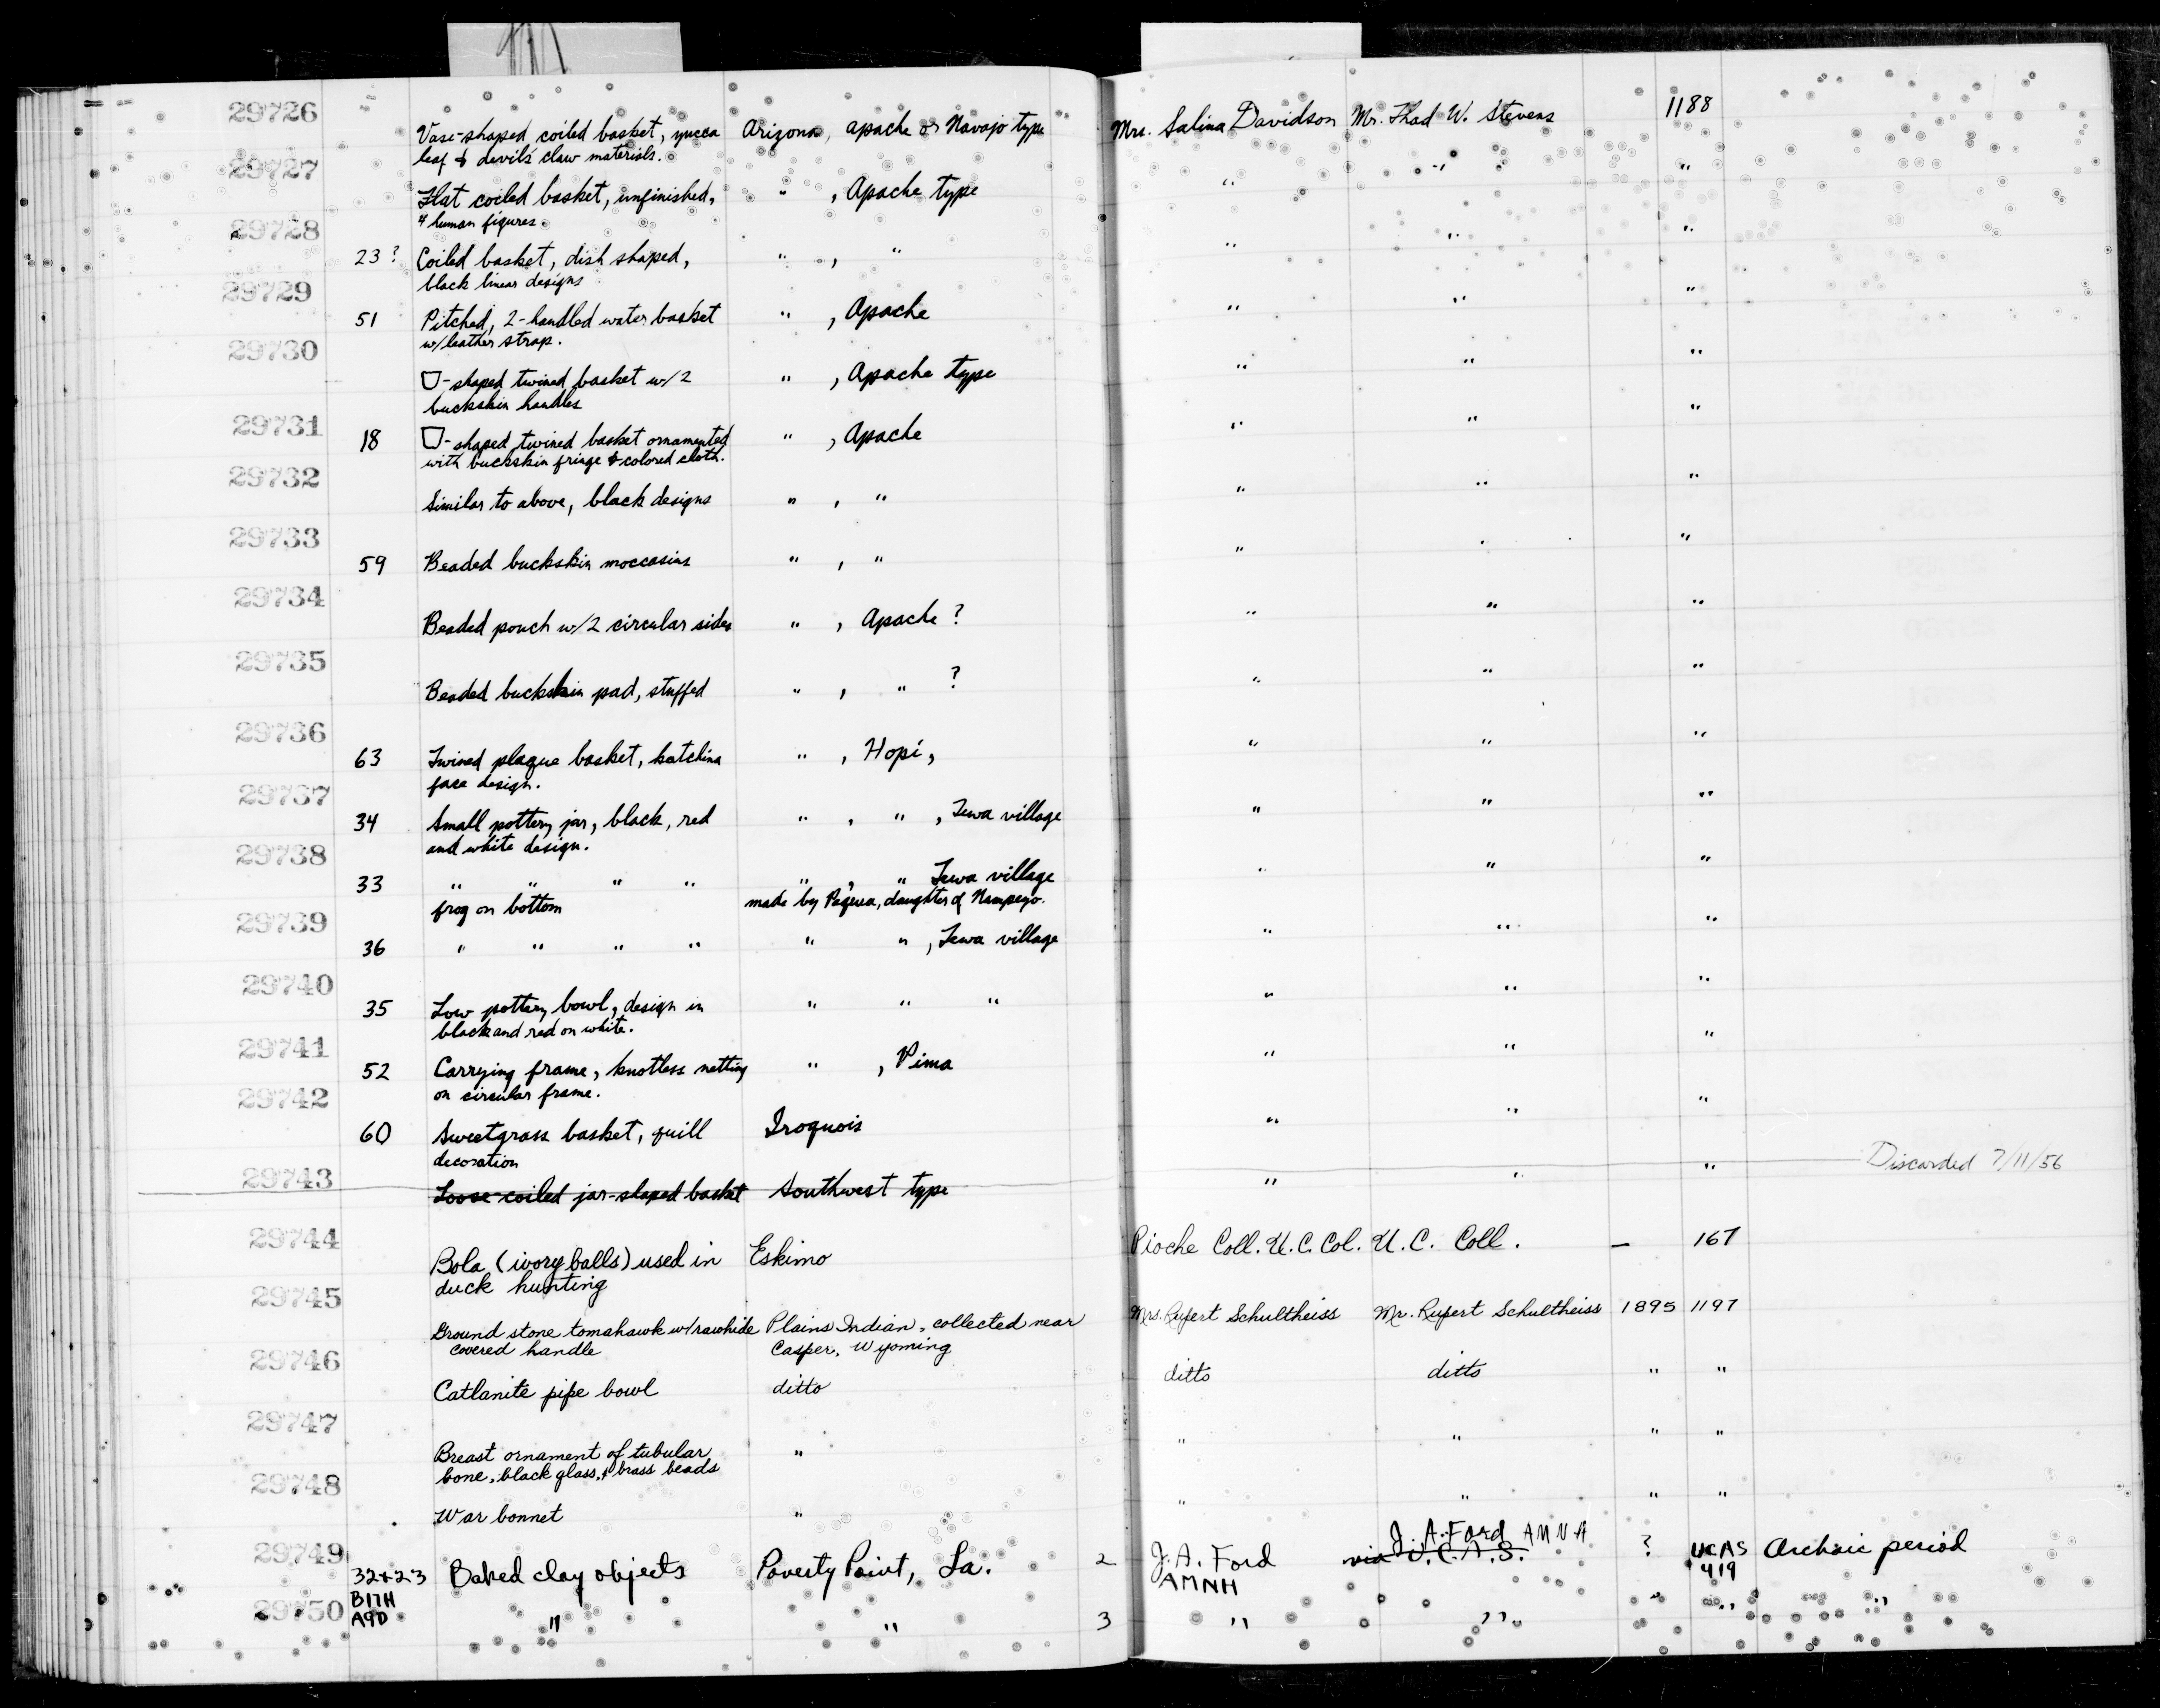 29726 Vase-shaped coiled basket, yucca Arizona, apache or Navajo type Mrs. Salina Davidson Mr. Thad W. Stevens 1188
leaf & devil's claw materials.
29727 Flat coiled basket, unfinished, " , Apache type " " "
4 human figures.
29728 23? Coiled basket, dish shaped, " , " " " "
black linear designs
29729 51 Pitched, 2-handled water basket " , Apache " " "
w/leather strap.
29730 -shaped twined basket w/2 " , Apache type " " "
buckskin handles
29731 18 -shaped twined basket ornamented " , Apache " " "
with buckskin fringe & colored cloth.
29732 Similar to above, black designs " , " " " "
29733 59 Beaded buckskin moccasins " , " " " "
29734 Beaded pouch w/2 circular sides " , Apache ? " " "
29735 Beaded buckskin pad, stuffed " , " ? " " "
29736 63 Twined plaque basket, katchina " , Hopi, " " "
face design.
29737 34 Small pottery jar, black, red " , " , Tewa village " " "
and white design.
29738 33 " " " " " , " Tewa village " " "
frog on bottom made by daughter of Nampeyo.
29739 36 " " " " " " , Tewa village " " "
29740 35 Low pottery bowl, design in " " " " " "
black and red on white.
29741 52 Carrying frame, knotless netting " , Pima " " "
on circular frame.
29742 60 Sweetgrass basket, quill Iroquois " " "
decoration
29743 Loose-coiled jar-shaped basket Southwest type " " " Discarded 7/11/56
29744 Bola (ivory balls) used in Eskimo Pioche Coll. U.C. Col. U.C. Coll. — 167
duck hunting
29745 Ground stone tomahawk w/rawhide Plains Indian, collected near Mrs. Rupert Schultheiss Mr. Rupert Schultheiss 1895 1197
covered handle Casper, Wyoming
29746 Catlanite pipe bowl ditto ditto ditto " "
29747 Breast ornament of tubular " " " " "
bone, black glass, & brass beads
29748 War bonnet " " " " "
29749 32+23 Baked clay objects Poverty Point, La. 2 J. A. Ford via U.C.A.S. J. A. Ford AMNH ? UCAS Archaic period
B17H AMNH 419
29750 A9D " " 3 " " " " "